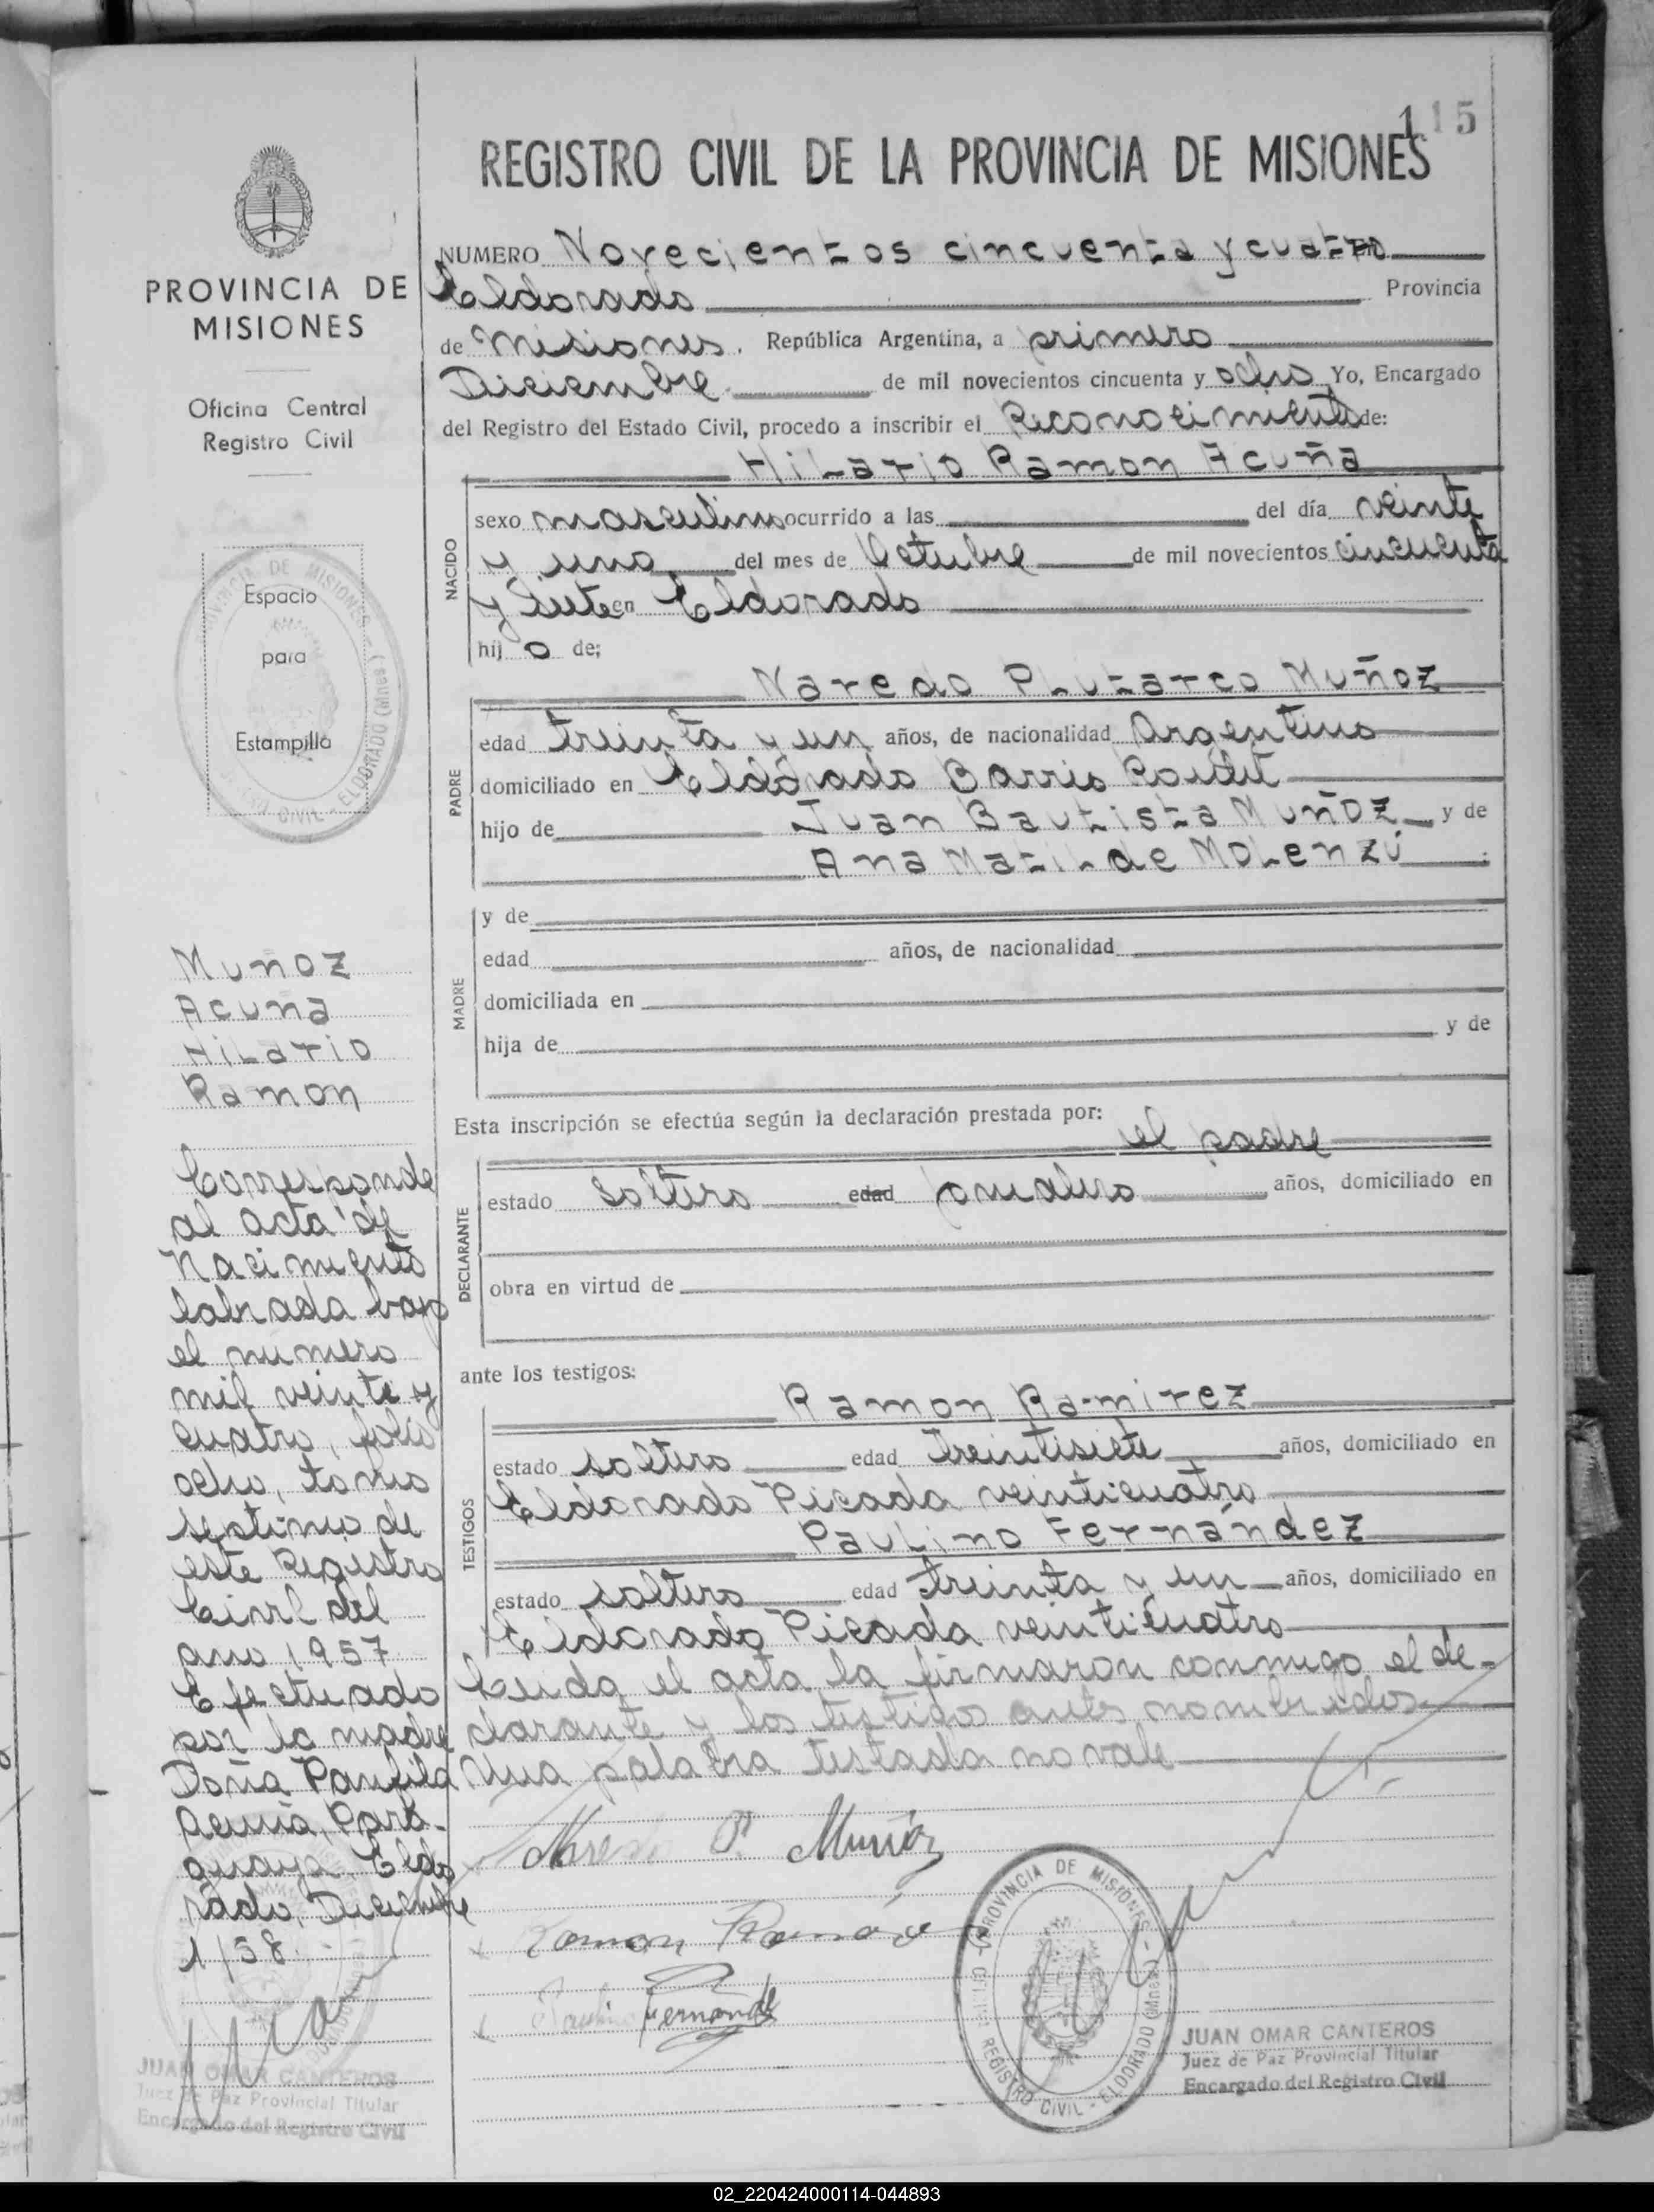 115
REGISTRO CIVIL DE LA PROVINCIA DE MISIONES
PROVINCIA DE
MISIONES
Oficina Central
Registro Civil
Espacio
para
Estampilla
Muñoz
Acuña
Hilario
Ramon
Corresponde
al acta de
Nacimiento
labrada bajo
el numero
mil veinte y
cuatro, folio
ocho, tomo
septimo de
este Registro
Civil del
año 1957
Efectuado
por la madre
Doña Panfila
Acuña, Para-
guaya. Eldo
rado, Diciembre
1/58.
JUAN OMAR CANTEROS
Juez de Paz Provincial Titular
Encargado del Registro Civil
NUMERO Novecientos cincuenta y cuatro
Eldorado Provincia
de Misiones. República Argentina, a primero
Diciembre de mil novecientos cincuenta y ocho Yo, Encargado
del Registro del Estado Civil, procedo a inscribir el Reconocimiento de:
Hilario Ramon Acuña
NACIDO
sexo masculino ocurrido a las del día veinte
y uno del mes de Octubre de mil novecientos cincuenta
y siete en Eldorado
hijo de;
Naredo Plutarco Muñoz
PADRE
edad treinta y un años, de nacionalidad Argentino
domiciliado en Eldorado Barrio
hijo de Juan Bautista Muñoz y de
Ana Matilde Molenzú
MADRE
y de
edad años, de nacionalidad
domiciliada en
hija de y de
Esta inscripción se efectúa según la declaración prestada por:
el padre
DECLARANTE
estado soltero edad jornalero años, domiciliado en
obra en virtud de
ante los testigos:
Ramon Ramirez
TESTIGOS
estado soltero edad treintisiete años, domiciliado en
Eldorado Picada veinticuatro
Paulino Fernández
estado soltero edad treinta y un años, domiciliado en
Eldorado Picada veinticuatro
Leida el acta la firmaron conmigo el de-
clarante y los testigos antes nombrados
Una palabra testada no vale
P. Muñoz
Ramon
Paulino Fernandez
PROVINCIA DE MISIONES
REGISTRO CIVIL - ELDORADO (Mnes.)
JUAN OMAR CANTEROS
Juez de Paz Provincial Titular
Encargado del Registro Civil
02_220424000114-044893